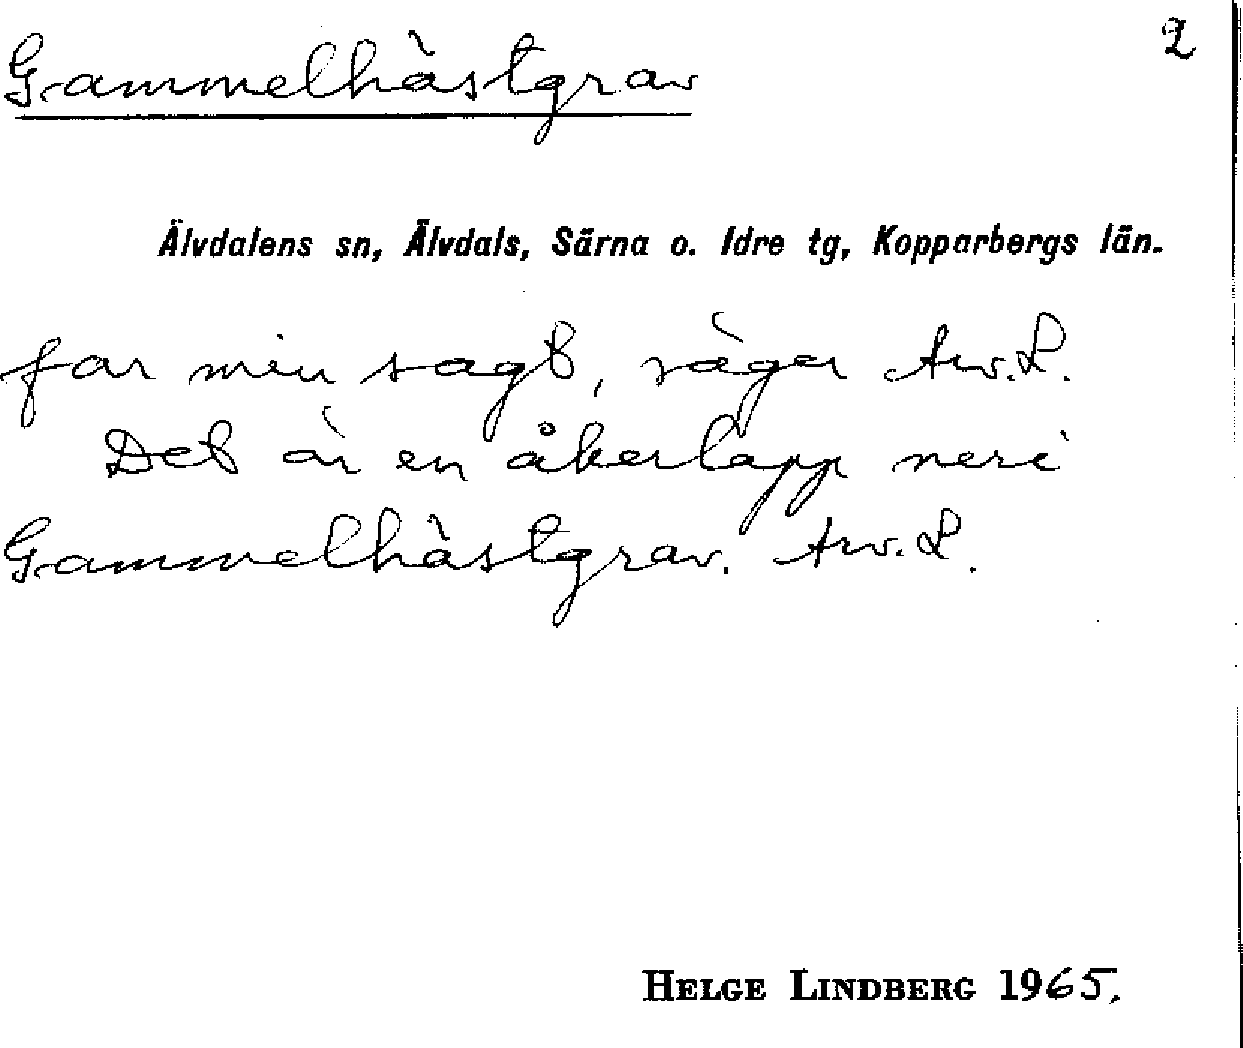 2
Gammelhästgrav
Älvdalens sn, Älvdals, Särna o. Idre tg, Kopparbergs län.
far min sagt, säger Arv. L.
Det är en åkerlapp neri
Gammelhästgrav. Arv. L.
HELGE LINDBERG 1965.